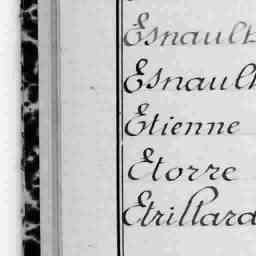 Esnault
Esnault
Etienne
Etorre
Etrillard